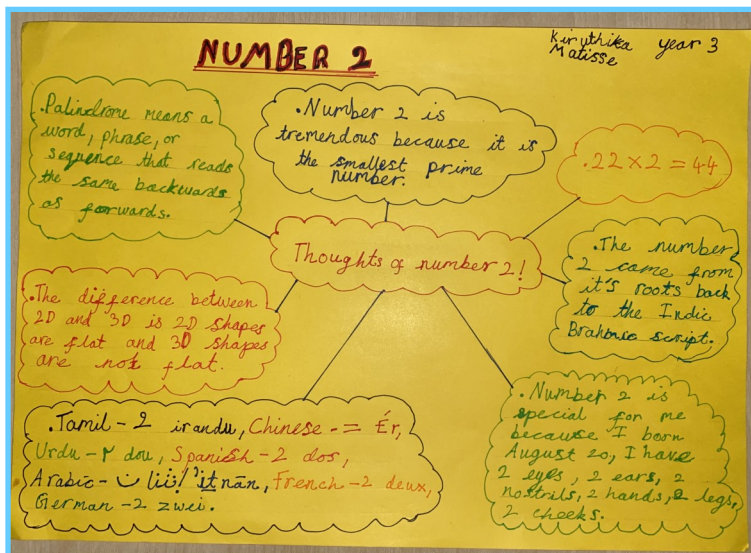 NUMBER 2
Kiruthika year 3
Matisse
.Palindrome means a
word, phrase, or
sequence that reads
the same backwards
as forwards.
.Number 2 is
tremendous because it is
the smallest prime
number.
.22 x 2 = 44
Thoughts of number 2!
.The number
2 came from
it's roots back
to the Indic
script.
.The difference between
2D and 3D is 2D shapes
are flat and 3D shapes
are not flat.
.Tamil - 2 irandu, Chinese - = Ér,
Urdu - ٢ dou, Spanish - 2 dos,
Arabic - itnān, French - 2 deux,
German - 2 zwei.
.Number 2 is
special for me
because I born
August 20, I have
2 eyes, 2 ears, 2
nostrils, 2 hands, 2 legs,
2 cheeks.